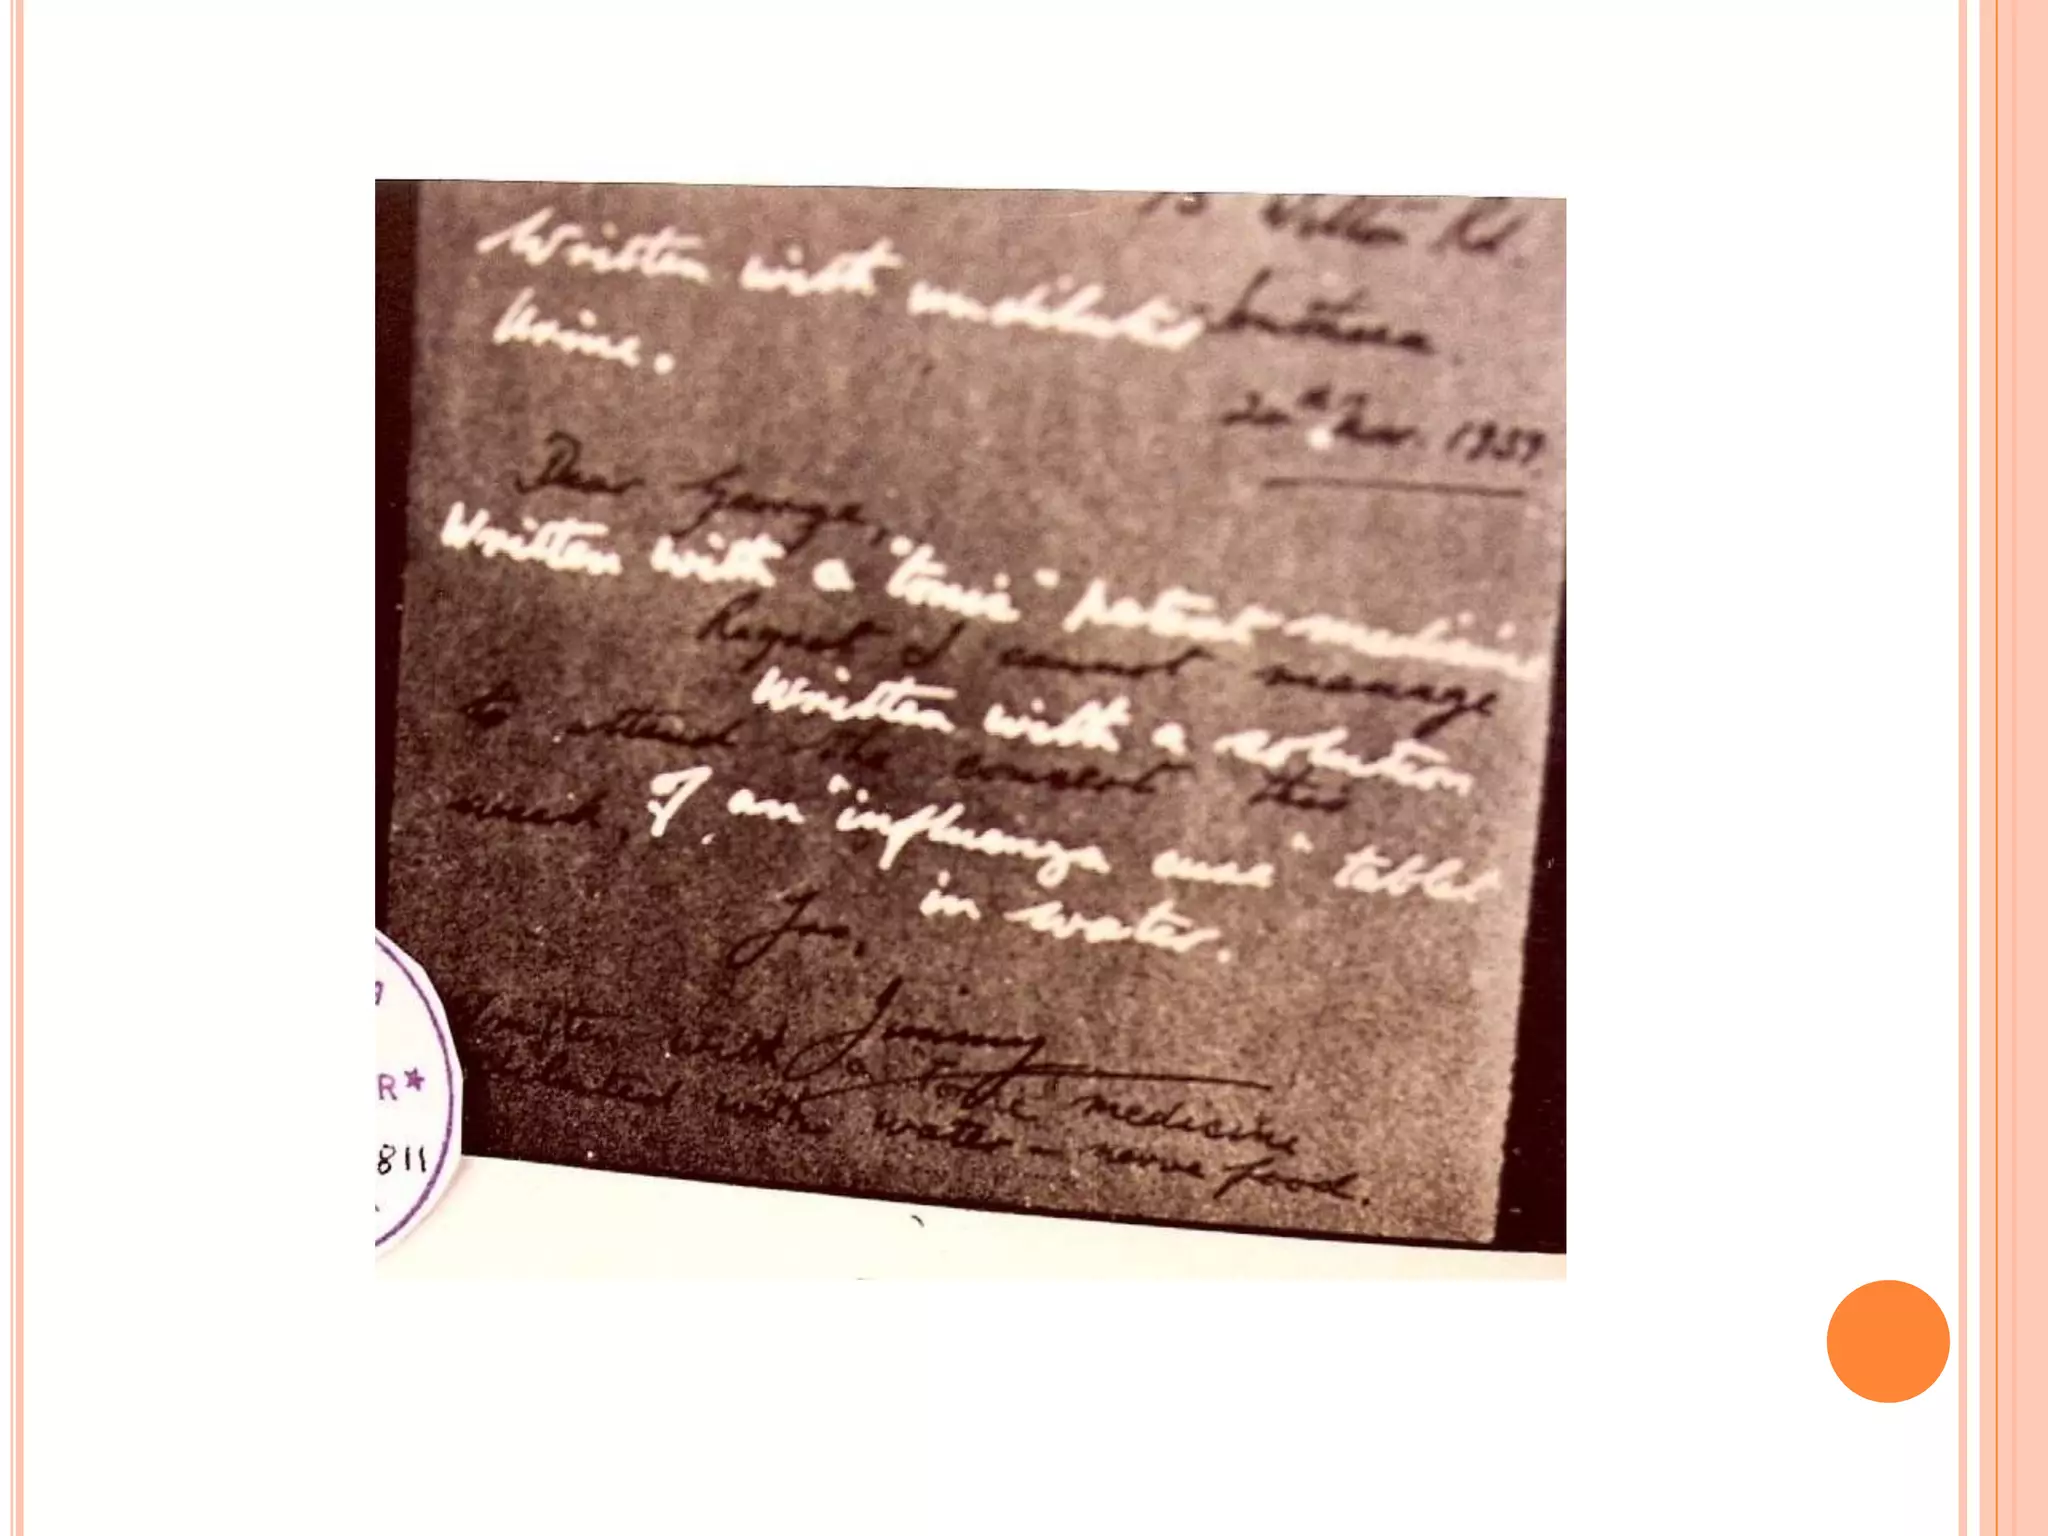 Written with undiluted
Urine.
Rd.
20th Nov. 1939.
Dear George,
Written with a "tonic" patent medicine
Regret I cannot manage
Written with a solution
to attend the concert this
of an "influenza cure" tablet
week,
in water.
Jimmy
Written with a tonic medicine
diluted with water - nerve food.
R*
811